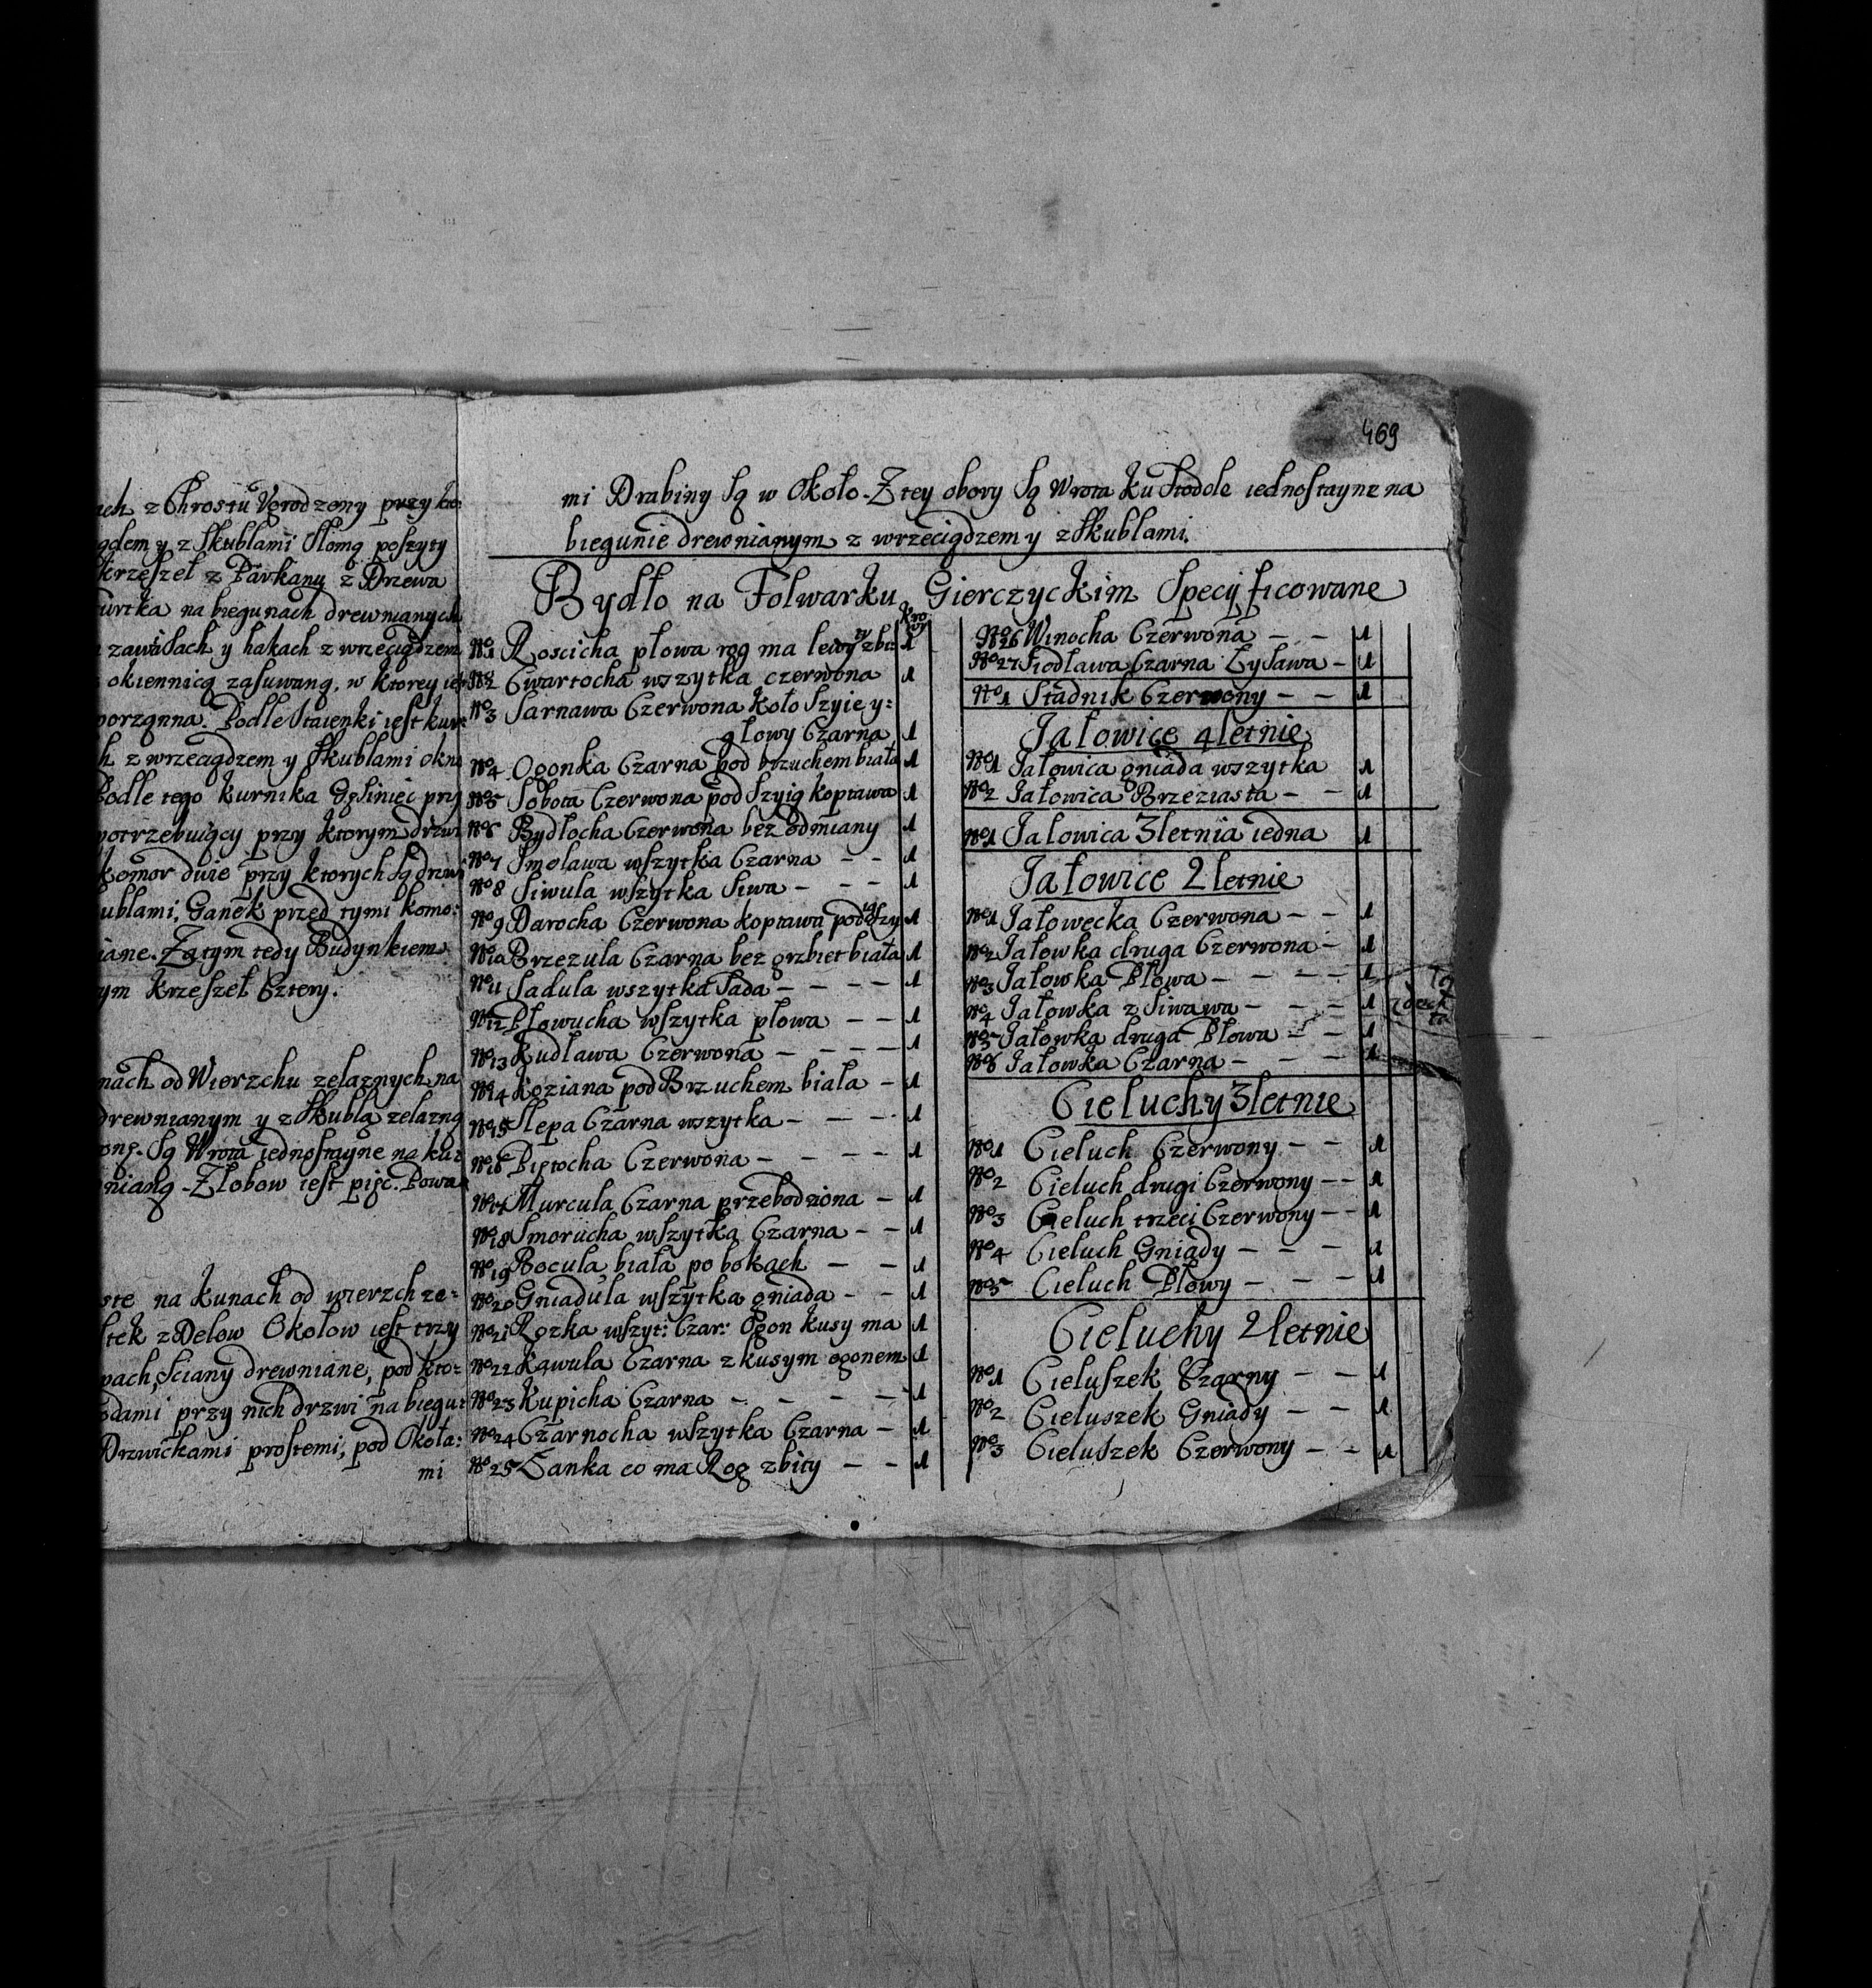 z Chrostu Vgrodzony przy kto:
gdem y z Skublami Słomą poszyty
krzeszeł z Parkany z Drzewa
na biegunach drewnianych
zawisach y hakach z wrzeciądzem
okiennicą zasuwaną, w ktorey iest
porząnna. Podle Staienki iest kur:
z wrzeciądzem y Skublami okno
Podle tego kurnika Gęsiniec przy
potrzebuiący przy ktorym drzwi
komor dwie przy ktorych są drzwi
Skublami, Ganek przed tymi komo:
Za tym tedy Budynkiem
ym krzeszeł Cztery.
nach od Wierzchu zelaznych na
drewnianym y z Skublą zelazną
Są Wrota iednostayne na ku:
nianą. Złobow iest pięc. Powa
na kunach od wierzch ze:
z Delow Okołow iest trzy
pach, Sciany drewniane, pod kto:
przy nich drzwi na biegu:
Drzwickami prostemi, pod Okoła:
mi
469
mi Drabiny są w Około. Z tey obory są Wrota ku Stodole iednostayne na
biegunie drewnianym z wrzeciądzem y z Skublami.
Bydło na Folwarku Gierczyckim Specyficowane
Kro
wy
No 1 Roscicha płowa rog ma lewy zbi: ty 1
No 2 Cwartocha wszytka czerwona 1
No 3 Sarnawa Czerwona koło Szyie y:
głowy Czarna 1
No 4 Ogonka Czarna pod brzuchem biała 1
No 5 Sobota Czerwona pod Szyią koprawa 1
No 6 Bydłocha Czerwona bez odmiany 1
No 7 Smolawa wszytka Czarna - - 1
No 8 Siwula wszytka Siwa - - - 1
No 9 Darocha Czerwona koprawa pod Szy ią 1
No 10 Brzezula Czarna bez grzbiet biała 1
No 11 Sadula wszytka Sada - - - - 1
No 12 Płowucha wszytka płowa - - 1
No 13 Rudława Czerwona - - - - 1
No 14 Koziana pod Brzuchem biała - 1
No 15 Slepa Czarna wszytka - - - 1
No 16 Piętocha Czerwona - - - - 1
No 17 Murcula Czarna przebodziona - 1
No 18 Smorucha wszytka Czarna - - 1
No 19 Bocula biała po bokach - - 1
No 20 Gniadula wszytka gniada - - 1
No 21 Rozka wszyt: Czar: Ogon kusy ma 1
No 22 Kawula Czarna z kusym ogonem 1
No 23 Kupicha Czarna - - - - 1
No 24 Czarnocha wszytka Czarna - 1
No 25 Łanka co ma Rog zbity - - 1
No 26 Winocha Czerwona - - 1
No 27 Siodława Czarna Łysawa - 1
No 1 Stadnik Czerwony - - 1
Jałowice 4 letnie
No 1 Jałowica gniada wszytka 1
No 2 Jałowica Brzeziasta - - 1
No 1 Jałowica 3 letnia iedna 1
Jałowice 2 letnie
No 1 Jałowecka Czerwona - - 1
No 2 Jałowka druga Czerwona - 1
No 3 Jałowka Płowa - - - - 1
No 4 Jałowka z Siwawa - - - 1
No 5 Jałowka druga Płowa - - 1
No 6 Jałowka Czarna - - - 1
Cieluchy 3 letnie
No 1 Cieluch Czerwony - - 1
No 2 Cieluch drugi Czerwony - - 1
No 3 Cieluch trzeci Czerwony - - 1
No 4 Cieluch Gniady - - - 1
No 5 Cieluch Płowy - - - 1
Cieluchy 2 letnie
No 1 Cieluszek Czarny - - 1
No 2 Cieluszek Gniady - - 1
No 3 Cieluszek Czerwony - - 1